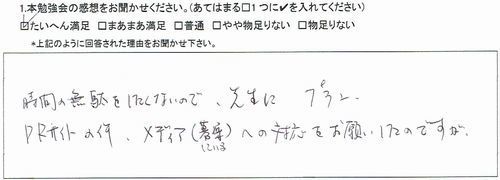 1.本勉強会の感想をお聞かせください。(あてはまる□１つに✔を入れてください)
☑たいへん満足 □まあまあ満足 □普通 □やや物足りない □物足りない
*上記のように回答された理由をお聞かせ下さい。
時間の無駄をしたくないので、先生に プラン、
PRサイトの件、メディア( への対応をお願いしたのですが、